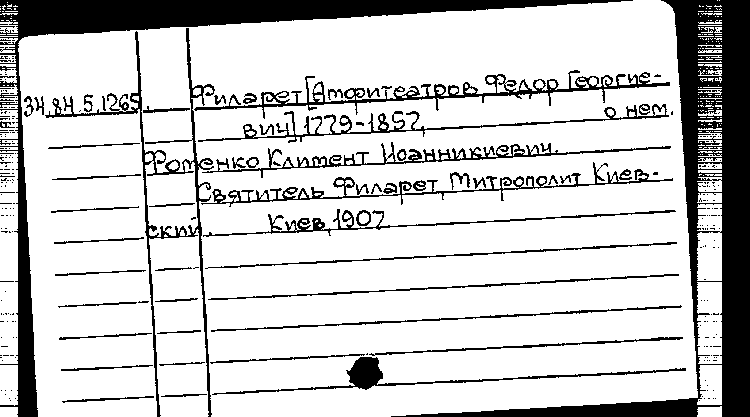 34.84.5.1265. Филарет [Амфитеатров, Федор Георгие-
вич], 1779-1857, о нем.
Фоменко, Климент Иоанникиевич.
Святитель Филарет, Митрополит Киев-
ский. Киев, 1907